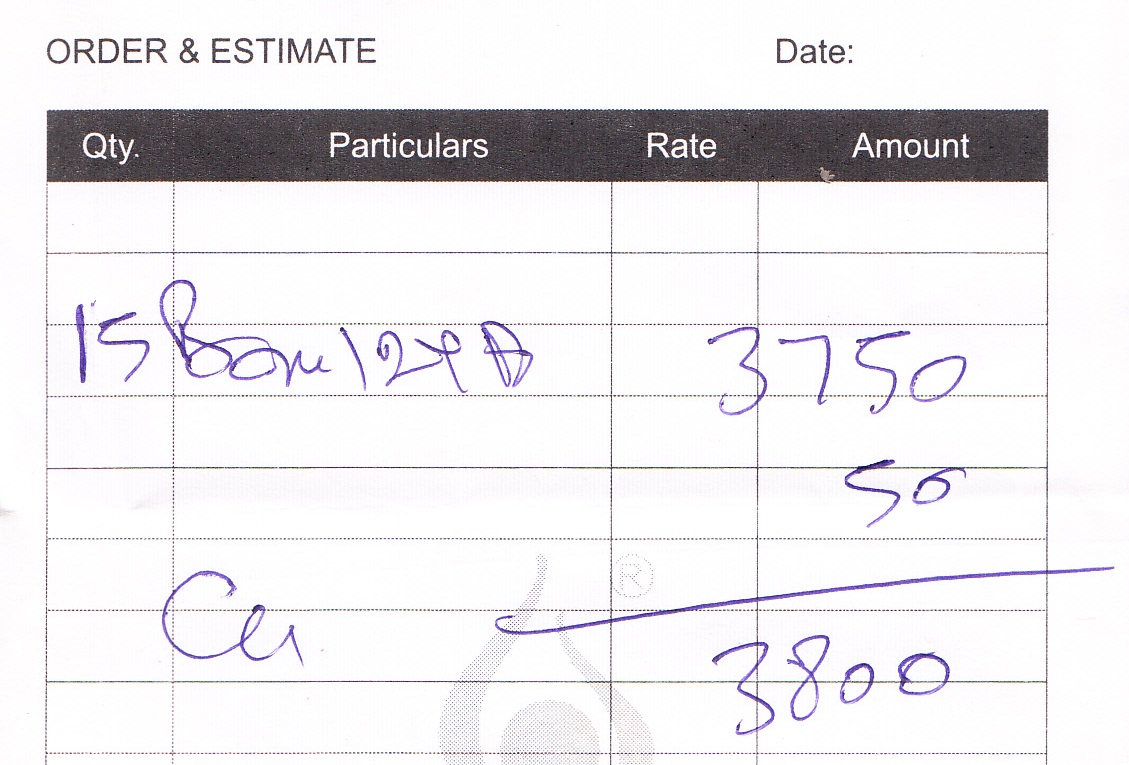 ORDER & ESTIMATE Date:
Qty. Particulars Rate Amount
15 3750
50
®
3800